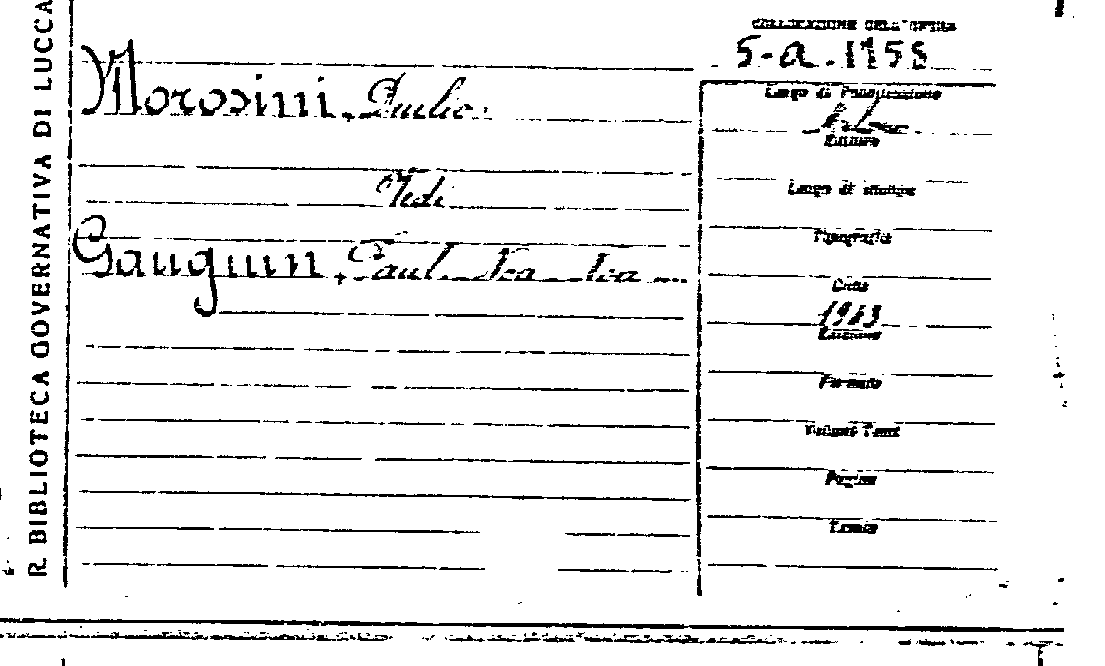 R. BIBLIOTECA GOVERNATIVA DI LUCCA
COLLOCAZIONE DELL'OPERA
5-a.1158
Morosini, Duilio.
Vedi
Gauguin, Paul. Noa Noa ...
Luogo di Pubblicazione
Milano
Editore
Luogo di stampa
Tipografia
Data
1943
Edizione
Formato
Volumi Tomi
Pagine